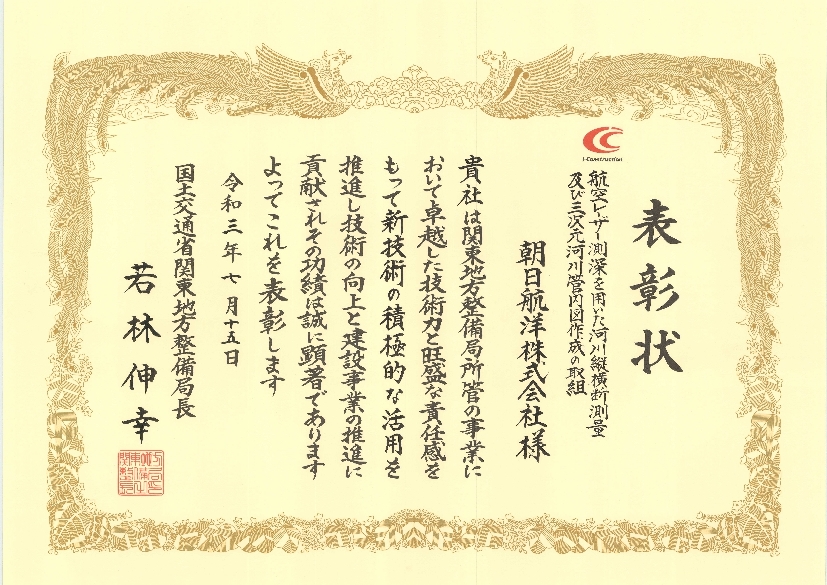 表彰状
i-Construction
航空レーザー測深を用いた河川縦横断測量
及び三次元河川管内図作成の取組
朝日航洋株式会社様
貴社は関東地方整備局所管の事業に
おいて卓越した技術力と旺盛な責任感を
もって新技術の積極的な活用を
推進し技術の向上と建設事業の推進に
貢献されその功績は誠に顕著であります
よってこれを表彰します
令和三年七月十五日
国土交通省関東地方整備局長
若林伸幸